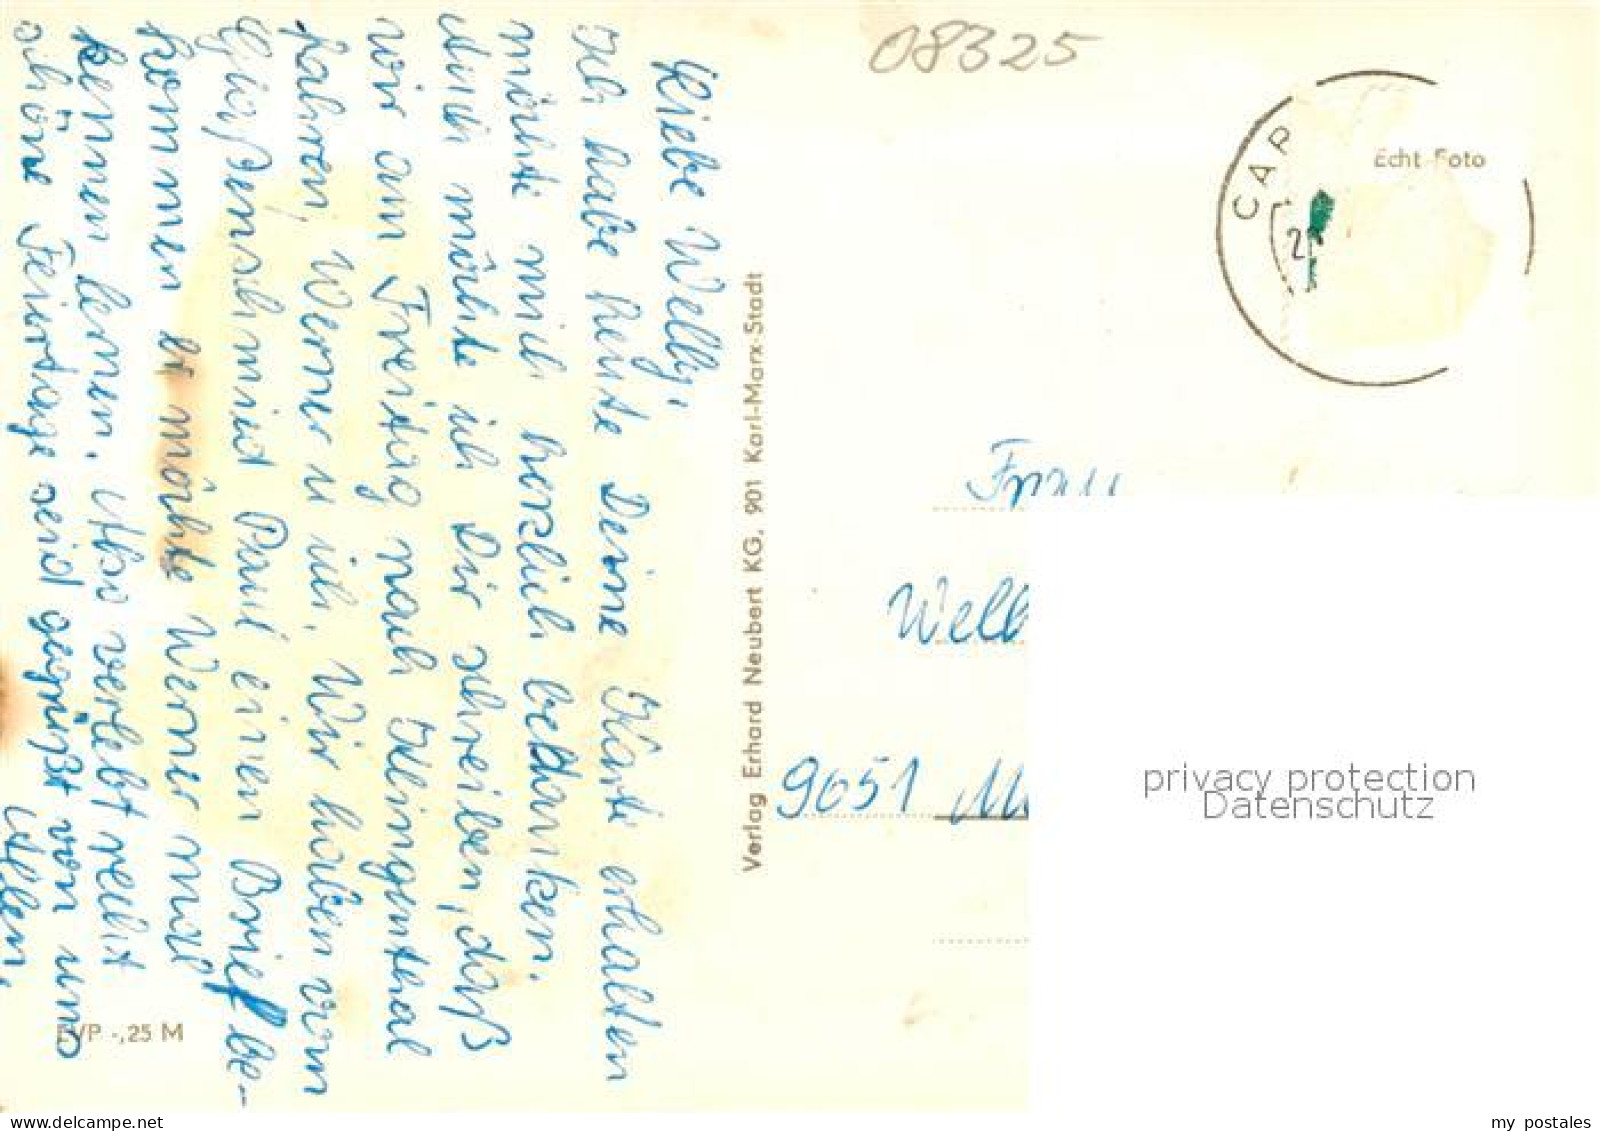 08325
CAP
2
Echt Foto
Liebe Welly,
Ich habe heute Deine Karte erhalten
möchte mich herzlich bedanken.
Auch möchte ich Dir schreiben, daß
wir am Freitag nach Klingenthal
fahren, Werner u ich. Wir haben vom
Paul einen Brief be-
kommen er möchte Werner mal
kennen lernen. Also verlebt recht
schöne Feiertage seid gegrüßt von uns
Allen.
EVP -,25 M
Verlag Erhard Neubert KG, 901 Karl-Marx-Stadt
Frau
Well
9051
privacy protection
Datenschutz
delcampe.net
my_postales